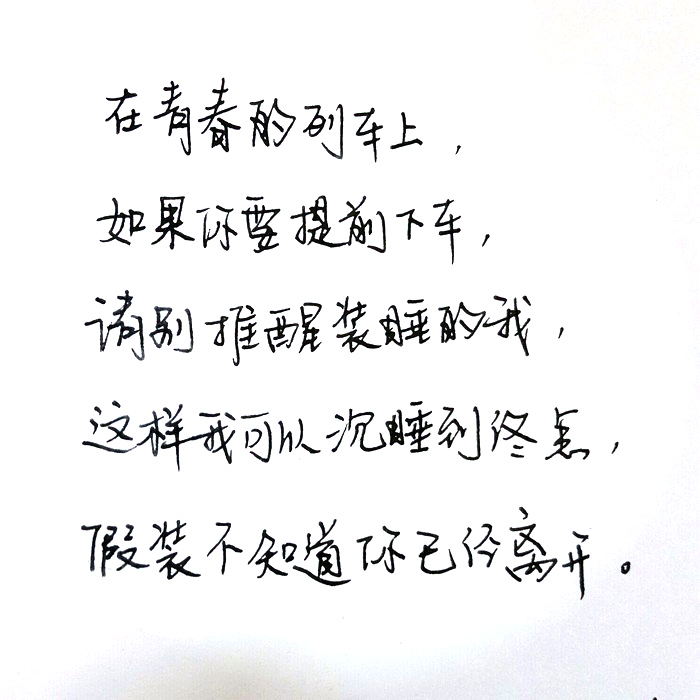 在青春的列车上，
如果你要提前下车，
请别推醒装睡的我，
这样我可以沉睡到终点，
假装不知道你已经离开。